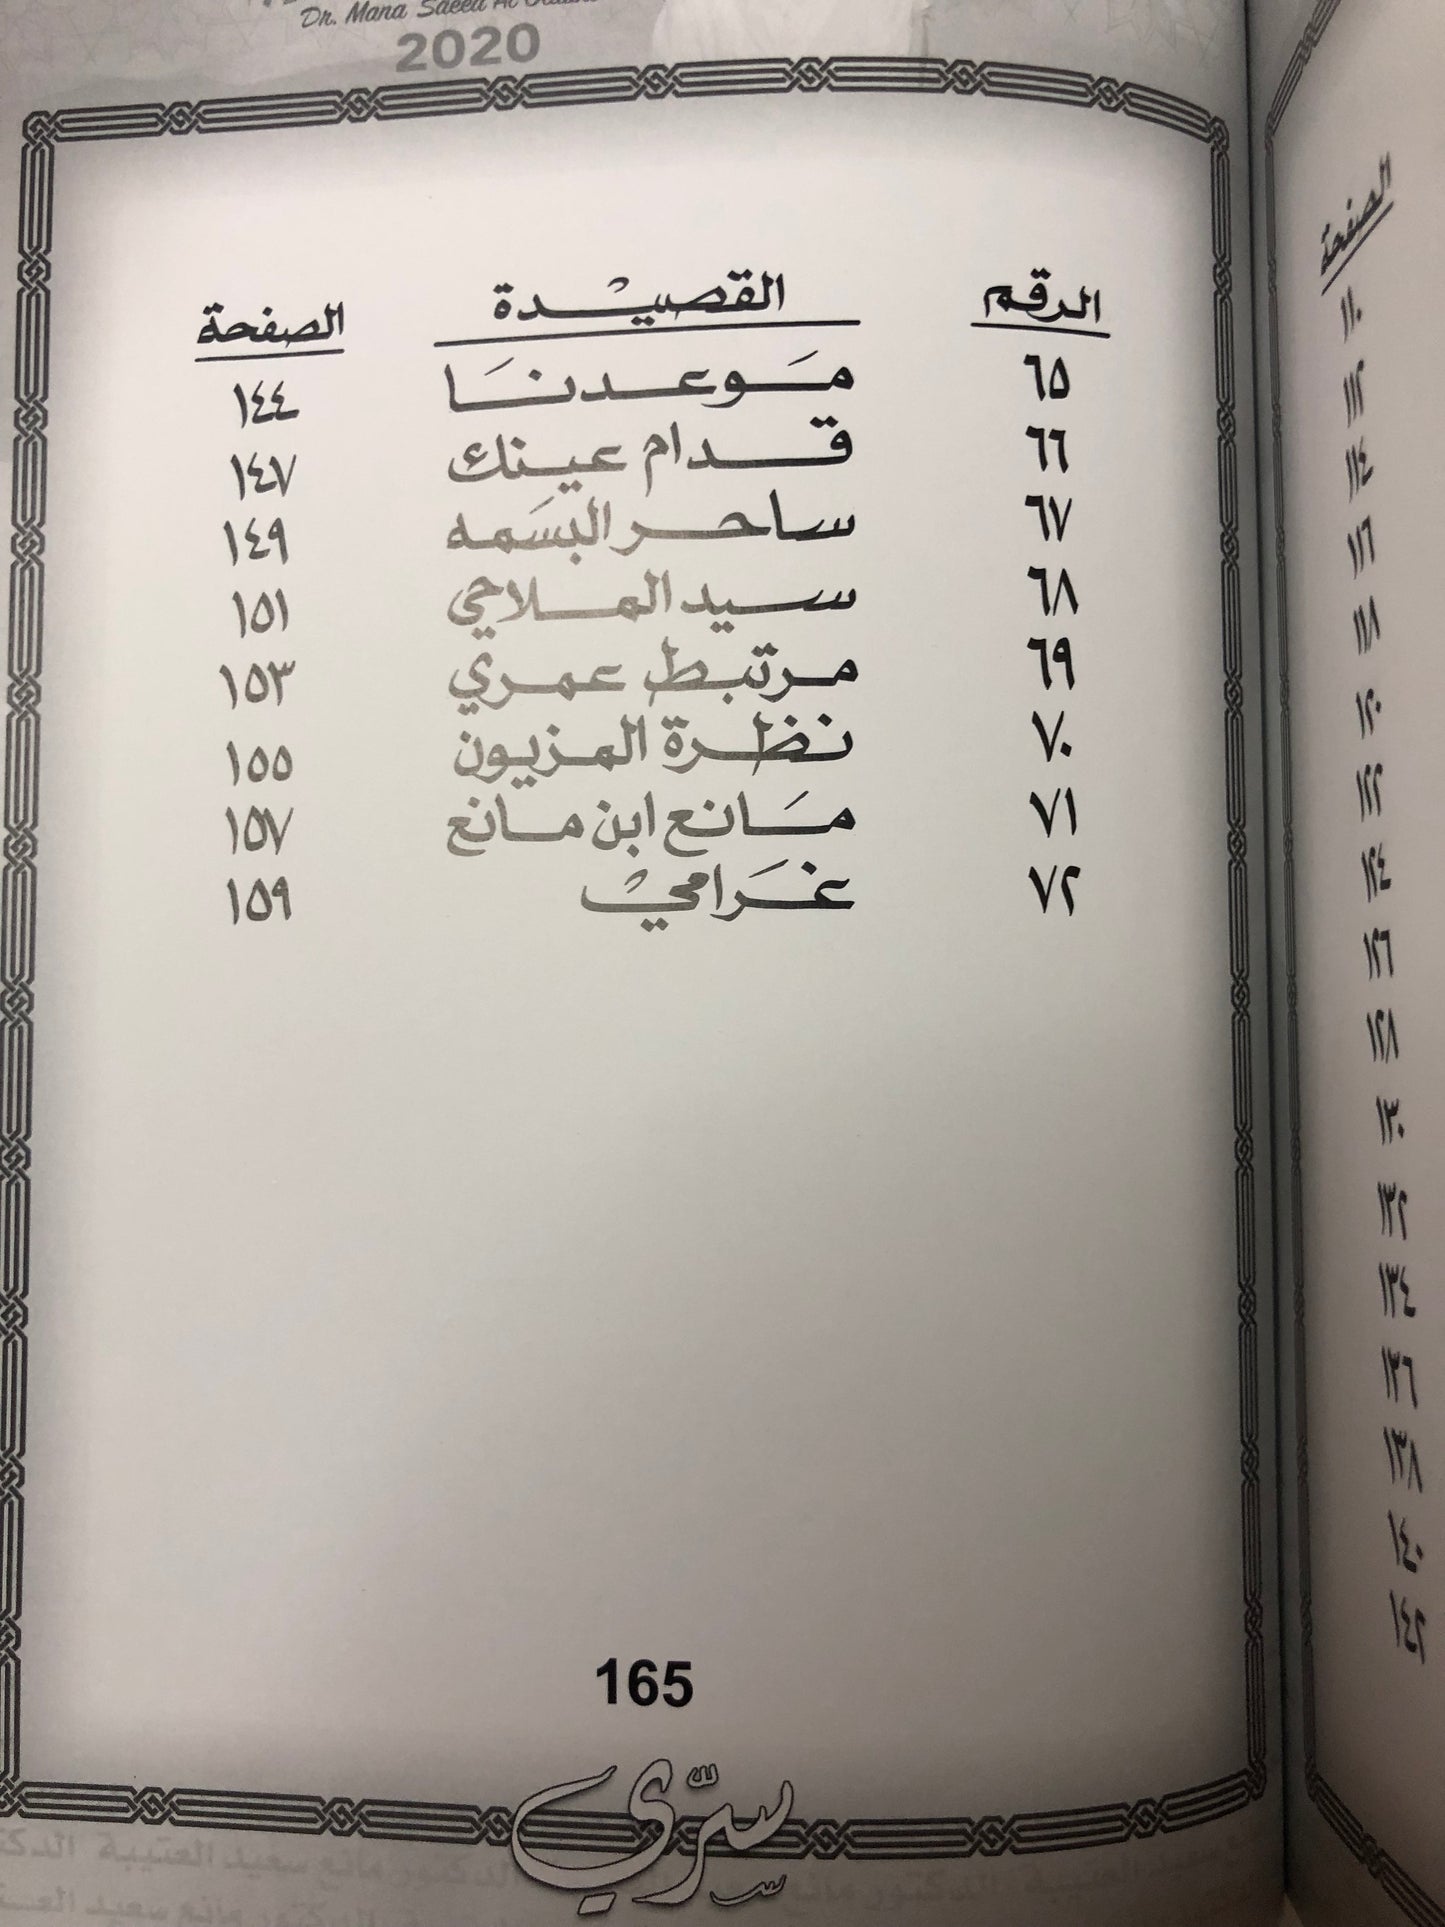 Dr. Mana Saeed Al
2020
الرقم القصيدة الصفحة
٦٥ مَوعدنَا ١٤٤
٦٦ قدام عينك ١٤٧
٦٧ ساحر البسَمه ١٤٩
٦٨ سيد الملاحي ١٥١
٦٩ مرتبط عمري ١٥٣
٧٠ نظرة المزيون ١٥٥
٧١ مَانع ابن مانع ١٥٧
٧٢ غَراميْ ١٥٩
165
سرّي
الصفحة
١١٠
١١٢
١١٤
١١٦
١١٨
١٢٠
١٢٢
١٢٤
١٢٦
١٢٨
١٣٠
١٣٢
١٣٤
١٣٦
١٣٨
١٤٠
١٤٢
الدكتور مانع سعيد العتيبة